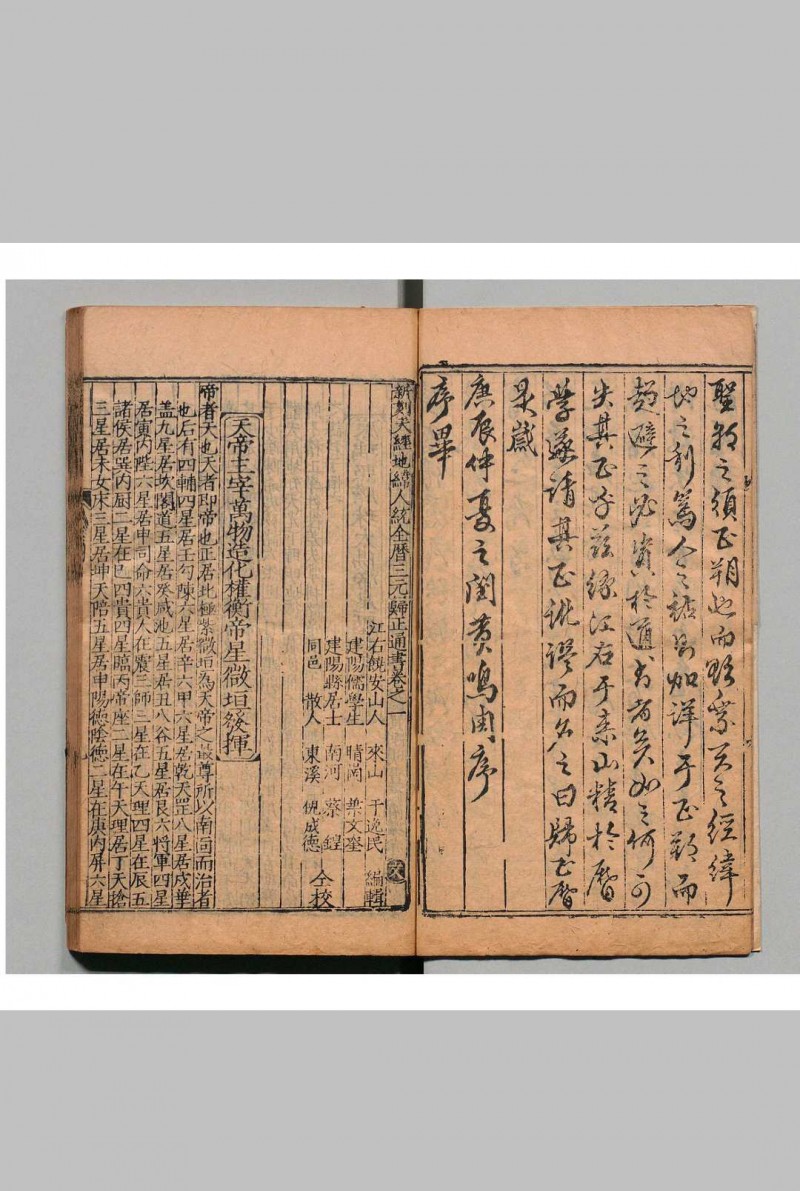 聖朝之須正朔也而點然天之經緯
地之利篤人之禎則加詳于正鄞而
趨避之必貴於適有者矣如之何可
失其正乎茲緣江右于來山精於曆
學遂請其正訛謬而名之曰歸正曆
是歲
庚辰仲夏之閏黄鳴周序
序畢
新刻天經地緯人統全曆三元歸正通書卷之一
江右饒安山人 來山 于逸民 編輯
建陽儒學生 晴崗 葉文奎
建陽縣居士 南河 蔡鋥
同邑 散人 東溪 倪成德 仝校
天帝主宰萬物造化權衡帝星微垣發揮
帝者天也天者即帝也正居北極紫微垣為天帝之最尊所以南面而治者
也后有四輔四星居壬勾陳六星居辛六甲六星居乾天罡八星居戌華
盖九星居坎閣道五星居癸咸池五星居丑八谷五星居艮六將軍四星
居寅内陛六星居甲司命六貴人在震三師三星在乙天理四星在辰五
諸候居巽内厨二星在巳四貴四星臨丙帝座二星在午天理居丁天搶
三星居未女床三星居坤天陪五星居申陽德陰德二星在庚内屏六星